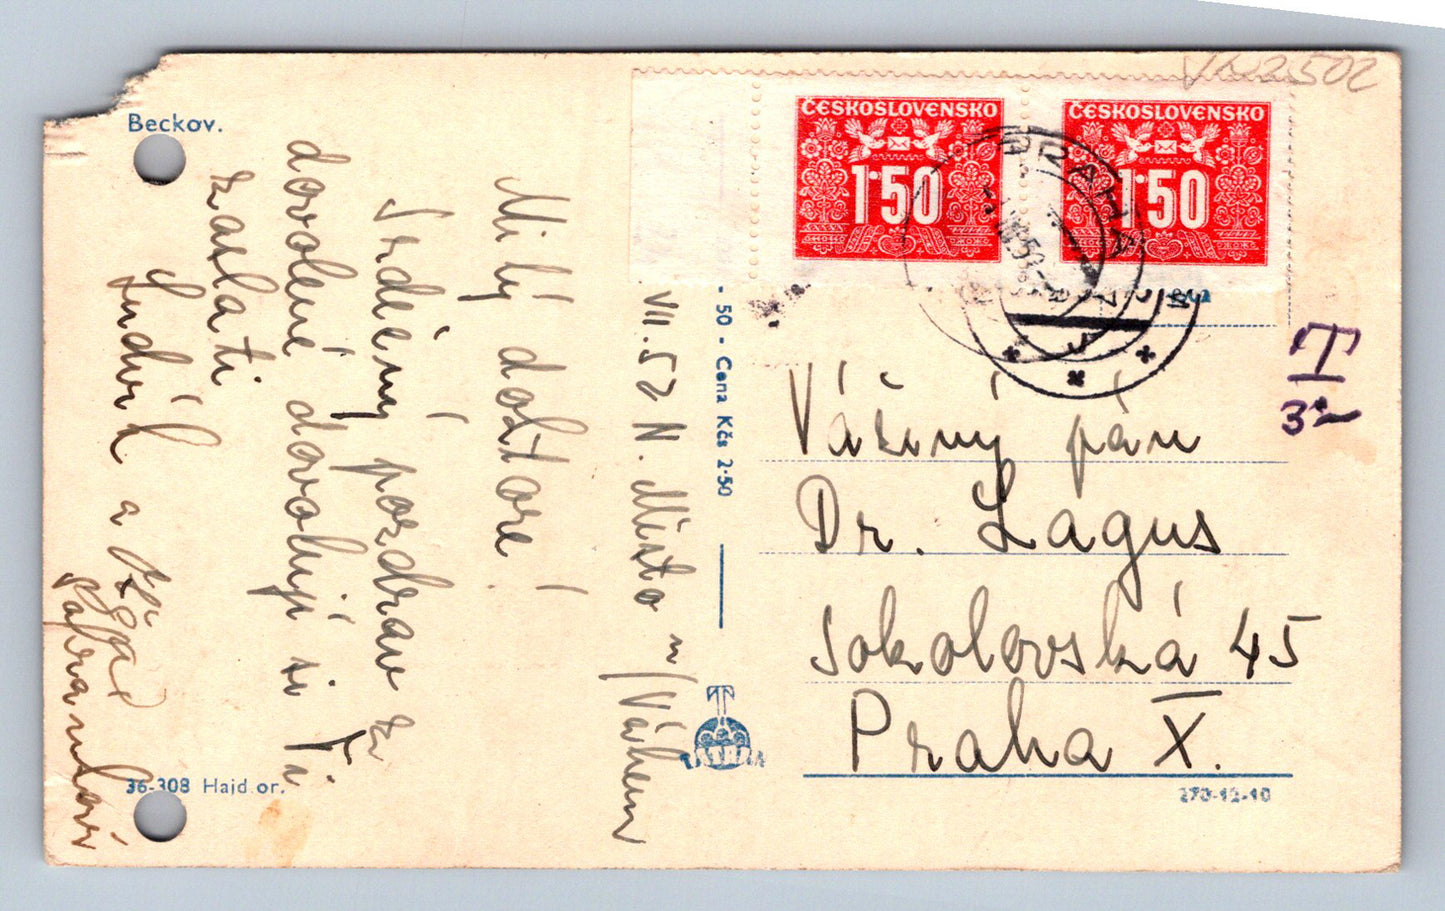 Beckov.
VII.52 N. Město n/Váhem
Milý doktore!
Srdečný pozdrav z
dovolené dovoluji si Ti
zaslati
Ludvík a
36-308 Hajd or.
50 - Cena Kčs 2·50
TATRAN
ČESKOSLOVENSKO
1·50
ČESKOSLOVENSKO
1·50
PRAHA 7
T
3·-
Vážený pán
Dr. Lagus
Sokolovská 45
Praha X.
270-12-10